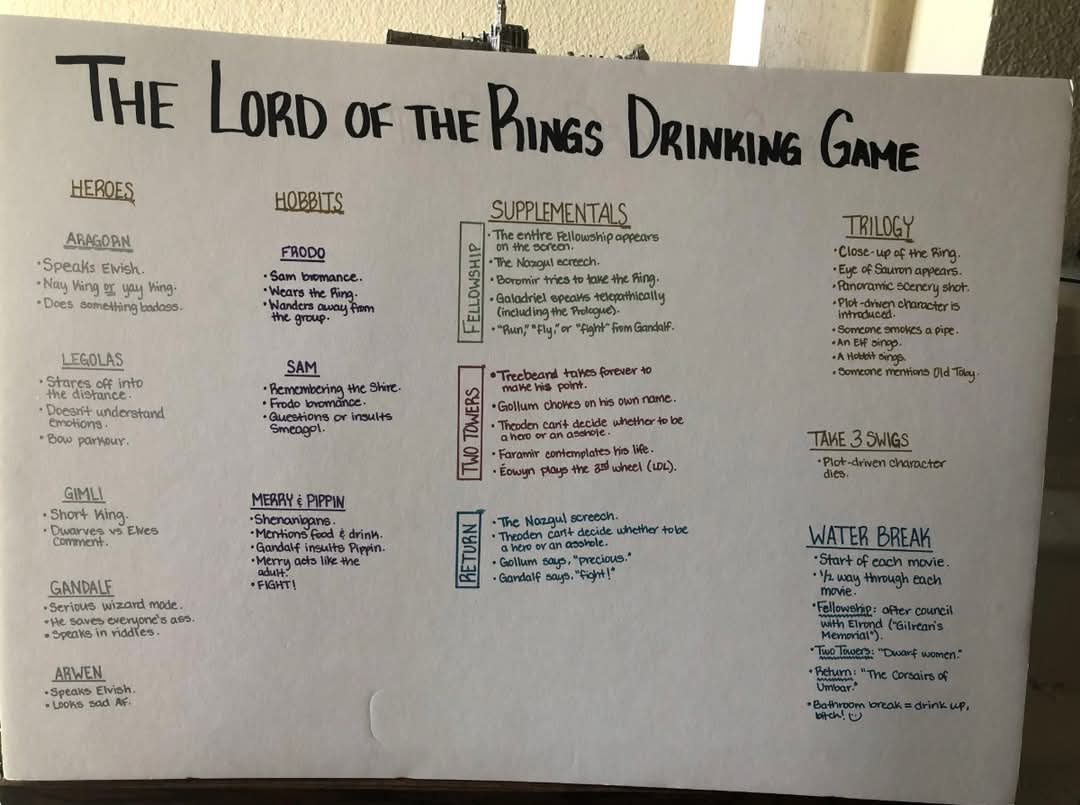 THE LORD OF THE RINGS DRINKING GAME
HEROES
ARAGORN
• Speaks Elvish.
• Nay King or yay King.
• Does something badass.
LEGOLAS
• Stares off into
the distance.
• Doesn't understand
emotions.
• Bow parkour.
GIMLI
• Short King.
• Dwarves vs Elves
comment.
GANDALF
• Serious wizard mode.
• He saves everyone's ass.
• Speaks in riddles.
ARWEN
• Speaks Elvish.
• Looks sad AF.
HOBBITS
FRODO
• Sam bromance.
• Wears the Ring.
• Wanders away from
the group.
SAM
• Remembering the Shire.
• Frodo bromance.
• Questions or insults
Smeagol.
MERRY & PIPPIN
• Shenanigans.
• Mentions food & drink.
• Gandalf insults Pippin.
• Merry acts like the
adult.
• FIGHT!
SUPPLEMENTALS
FELLOWSHIP
• The entire Fellowship appears
on the screen.
• The Nazgul screech.
• Boromir tries to take the Ring.
• Galadriel speaks telepathically
(including the Prologue).
• "Run," "fly," or "fight" from Gandalf.
TWO TOWERS
• Treebeard takes forever to
make his point.
• Gollum chokes on his own name.
• Theoden can't decide whether to be
a hero or an asshole.
• Faramir contemplates his life.
• Éowyn plays the 3rd wheel (LOL).
RETURN
• The Nazgul screech.
• Theoden can't decide whether to be
a hero or an asshole.
• Gollum says, "precious."
• Gandalf says, "fight!"
TRILOGY
• Close-up of the Ring.
• Eye of Sauron appears.
• Panoramic scenery shot.
• Plot-driven character is
introduced.
• Someone smokes a pipe.
• An Elf sings.
• A Hobbit sings.
• Someone mentions Old Toby.
TAKE 3 SWIGS
• Plot-driven character
dies.
WATER BREAK
• Start of each movie.
• 1/2 way through each
movie.
• Fellowship: after council
with Elrond ("Gilrean's
Memorial").
• Two Towers: "Dwarf women."
• Return: "The Corsairs of
Umbar."
• Bathroom break = drink up,
bitch! ☺